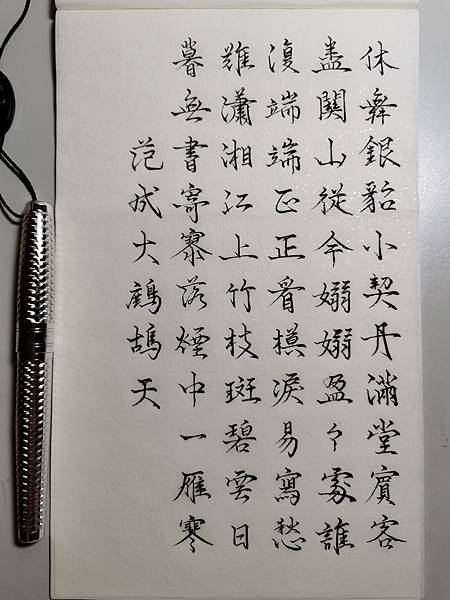 休舞銀貂小契丹滿堂賓客
盡關山從今嫋嫋盈々處誰
復端端正正看模淚易寫愁
難瀟湘江上竹枝斑碧雲日
暮無書寄寥落煙中一雁寒
范成大鷓鴣天